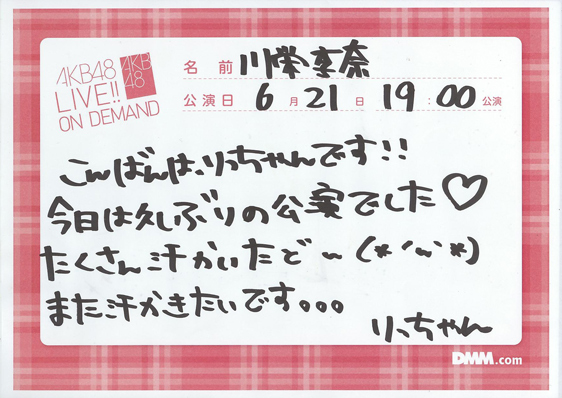 AKB48
LIVE!!
ON DEMAND
AKB
48
名前 川栄李奈
公演日 6月21日 19:00公演
こんばんは、りっちゃんです!!
今日は久しぶりの公実でした♡
たくさん汗かいたど~(*'~'*)
また汗かきたいです。。。
りっちゃん
DMM.com